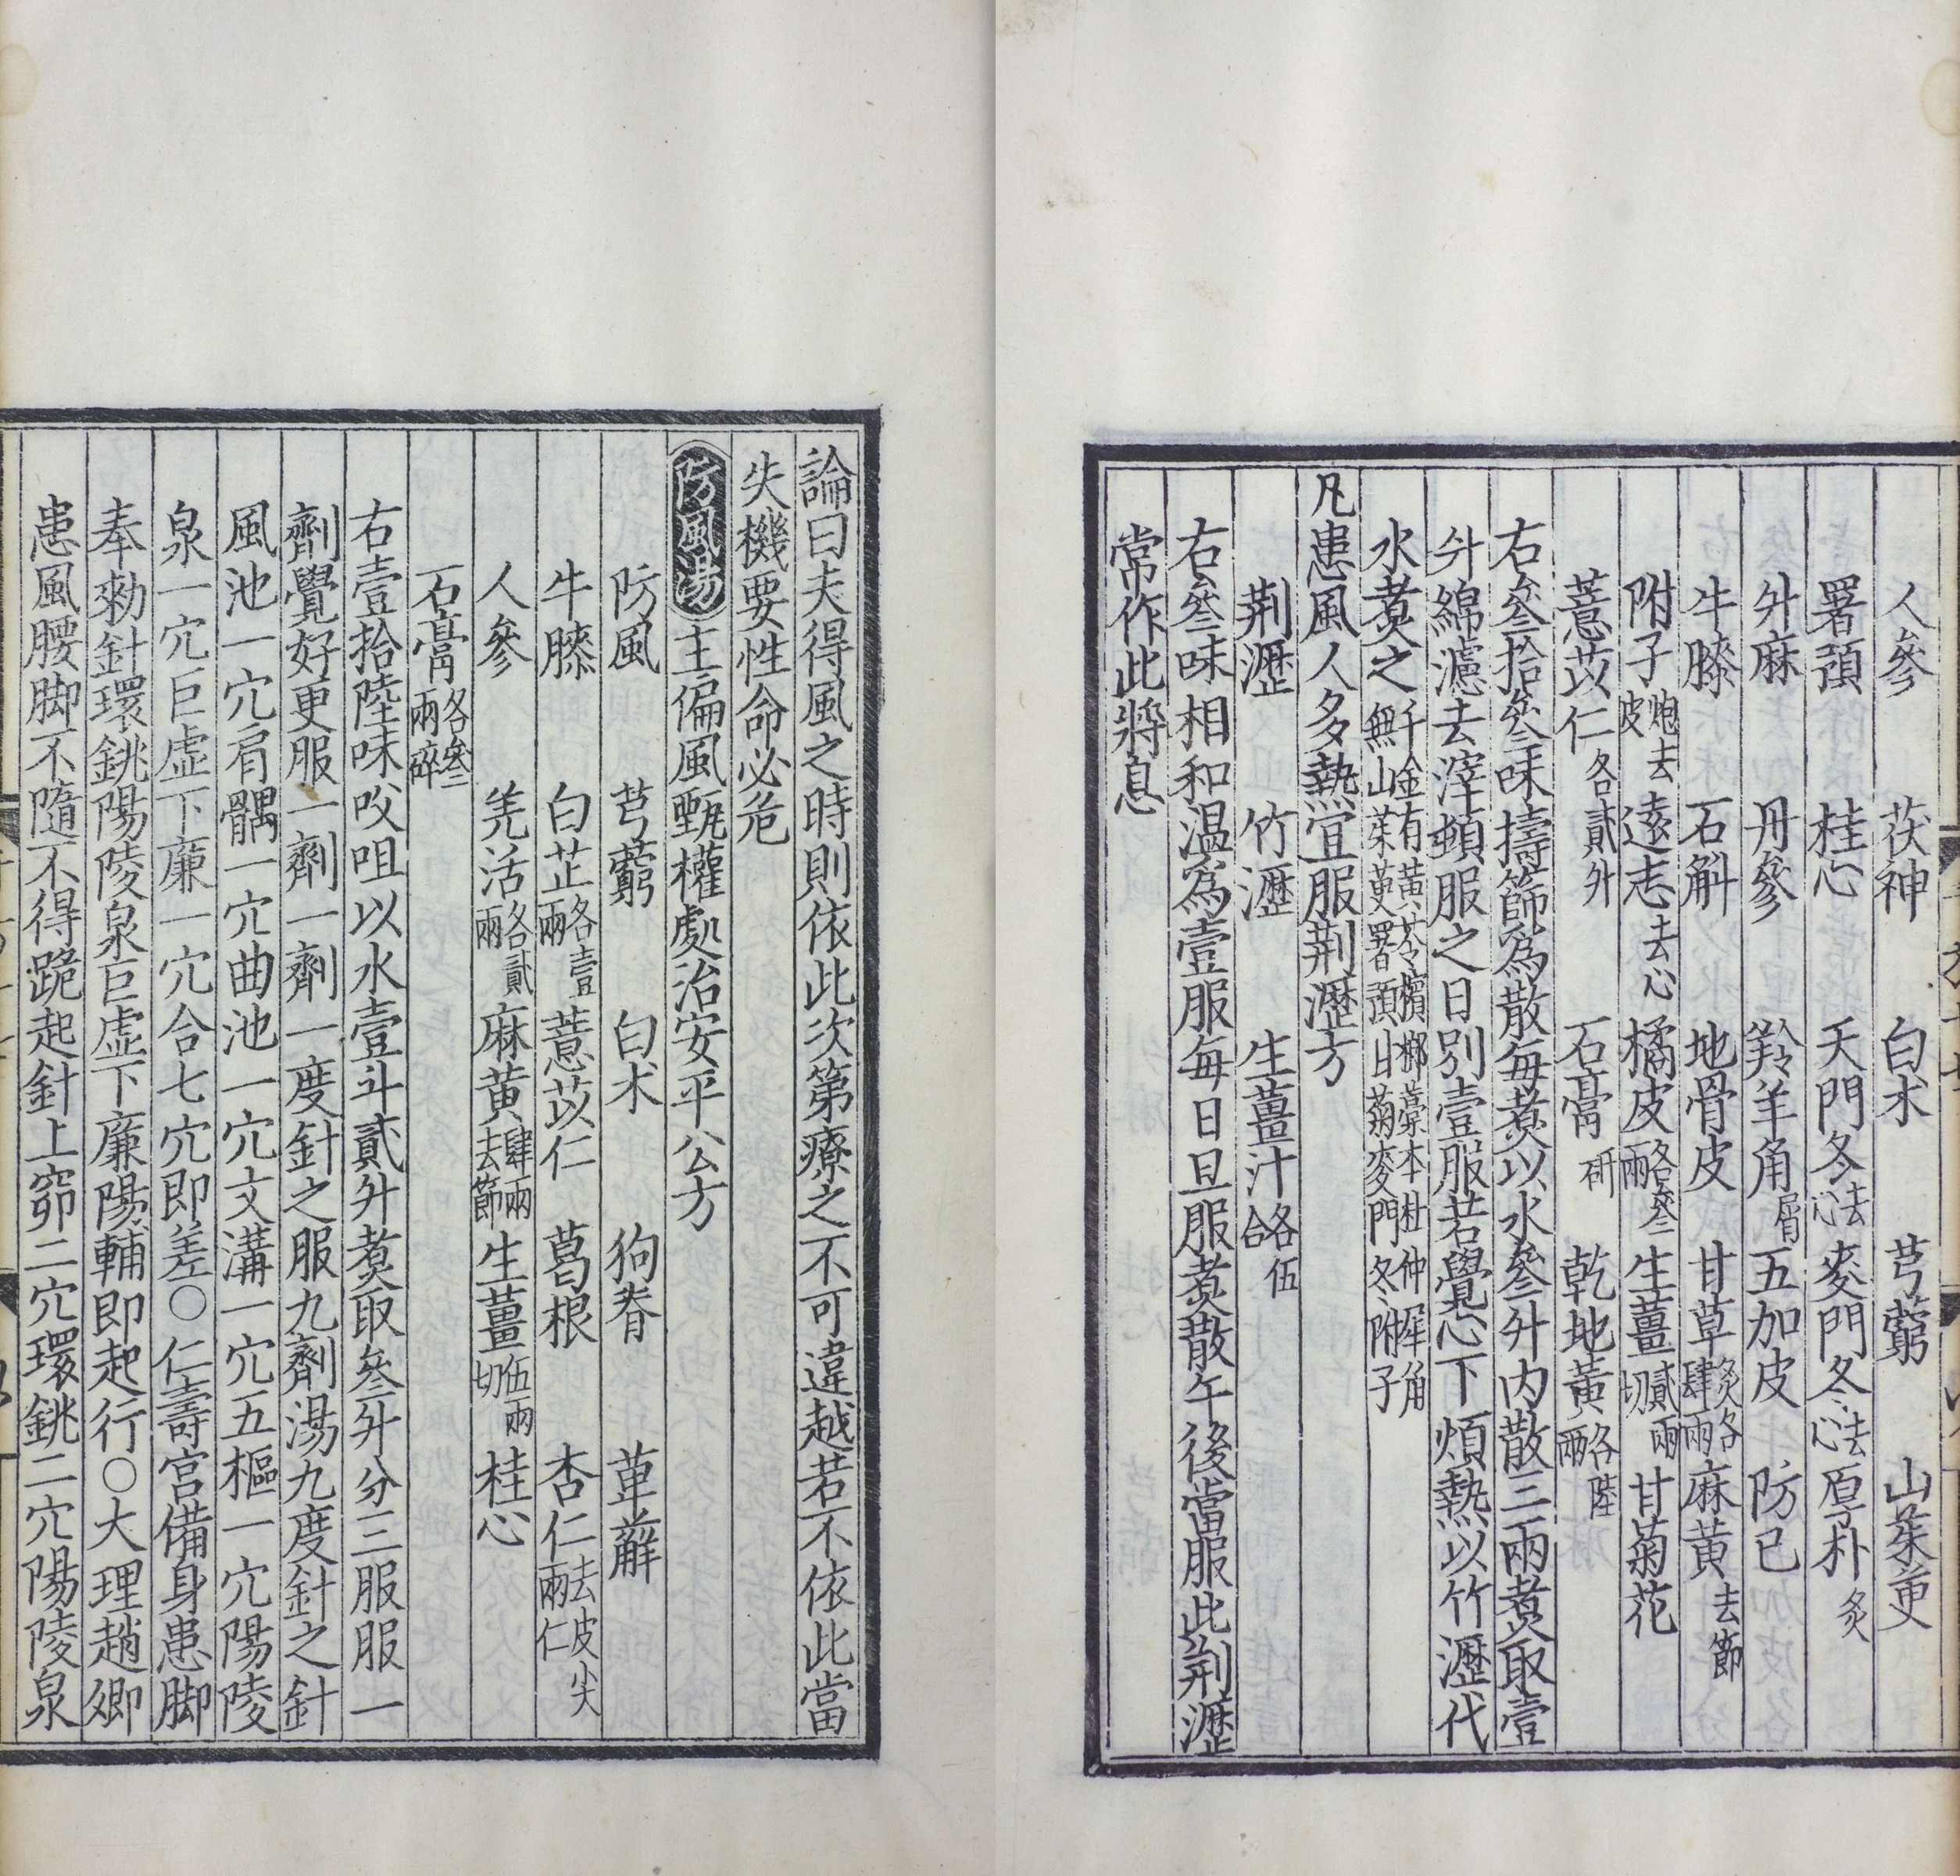 人參　茯神　白术　芎藭　山茱萸
署預　桂心　天門冬去心　麥門冬去心　厚朴炙
升麻　丹參　羚羊角屑　五加皮　防已
牛膝　石斛　地骨皮　甘草炙各肆兩　麻黄去節
附子炮去皮　遠志去心　橘皮各叁兩　生薑貳兩切　甘菊花
薏苡仁各貳升　石膏研　乾地黄各陸兩
右叁拾叁味擣篩為散每煮以水叁升内散三兩煮取壹
升綿濾去滓頓服之日别壹服若覺心下煩熱以竹瀝代
水煮之千金有黄芩檳榔藁本杜仲犀角無山茱萸署預甘菊麥門冬附子
凡患風人多熱宜服荆瀝方
荆瀝　竹瀝　生薑汁各伍合
右叁味相和温為壹服每日旦服煮散午後當服此荆瀝
常作此將息
論曰夫得風之時則依此次第療之不可違越若不依此當
失機要性命必危
防風湯主偏風甄權處治安平公方
防風　芎藭　白术　狗脊　萆薢
牛膝　白芷各壹兩　薏苡仁　葛根　杏仁去皮尖兩仁
人參　羌活各貳兩　麻黄肆兩去節　生薑伍兩切　桂心
石膏各叁兩碎
右壹拾陸味㕮咀以水壹斗貳升煮取叁升分三服服一
劑覺好更服一劑一劑一度針之服九劑湯九度針之針
風池一穴肩髃一穴曲池一穴支溝一穴五樞一穴陽陵
泉一穴巨虚下廉一穴合七穴即差○仁壽宫備身患脚
奉勑針環銚陽陵泉巨虚下廉陽輔即起行○大理趙卿
患風腰脚不隨不得跪起針上窌二穴環銚二穴陽陵泉